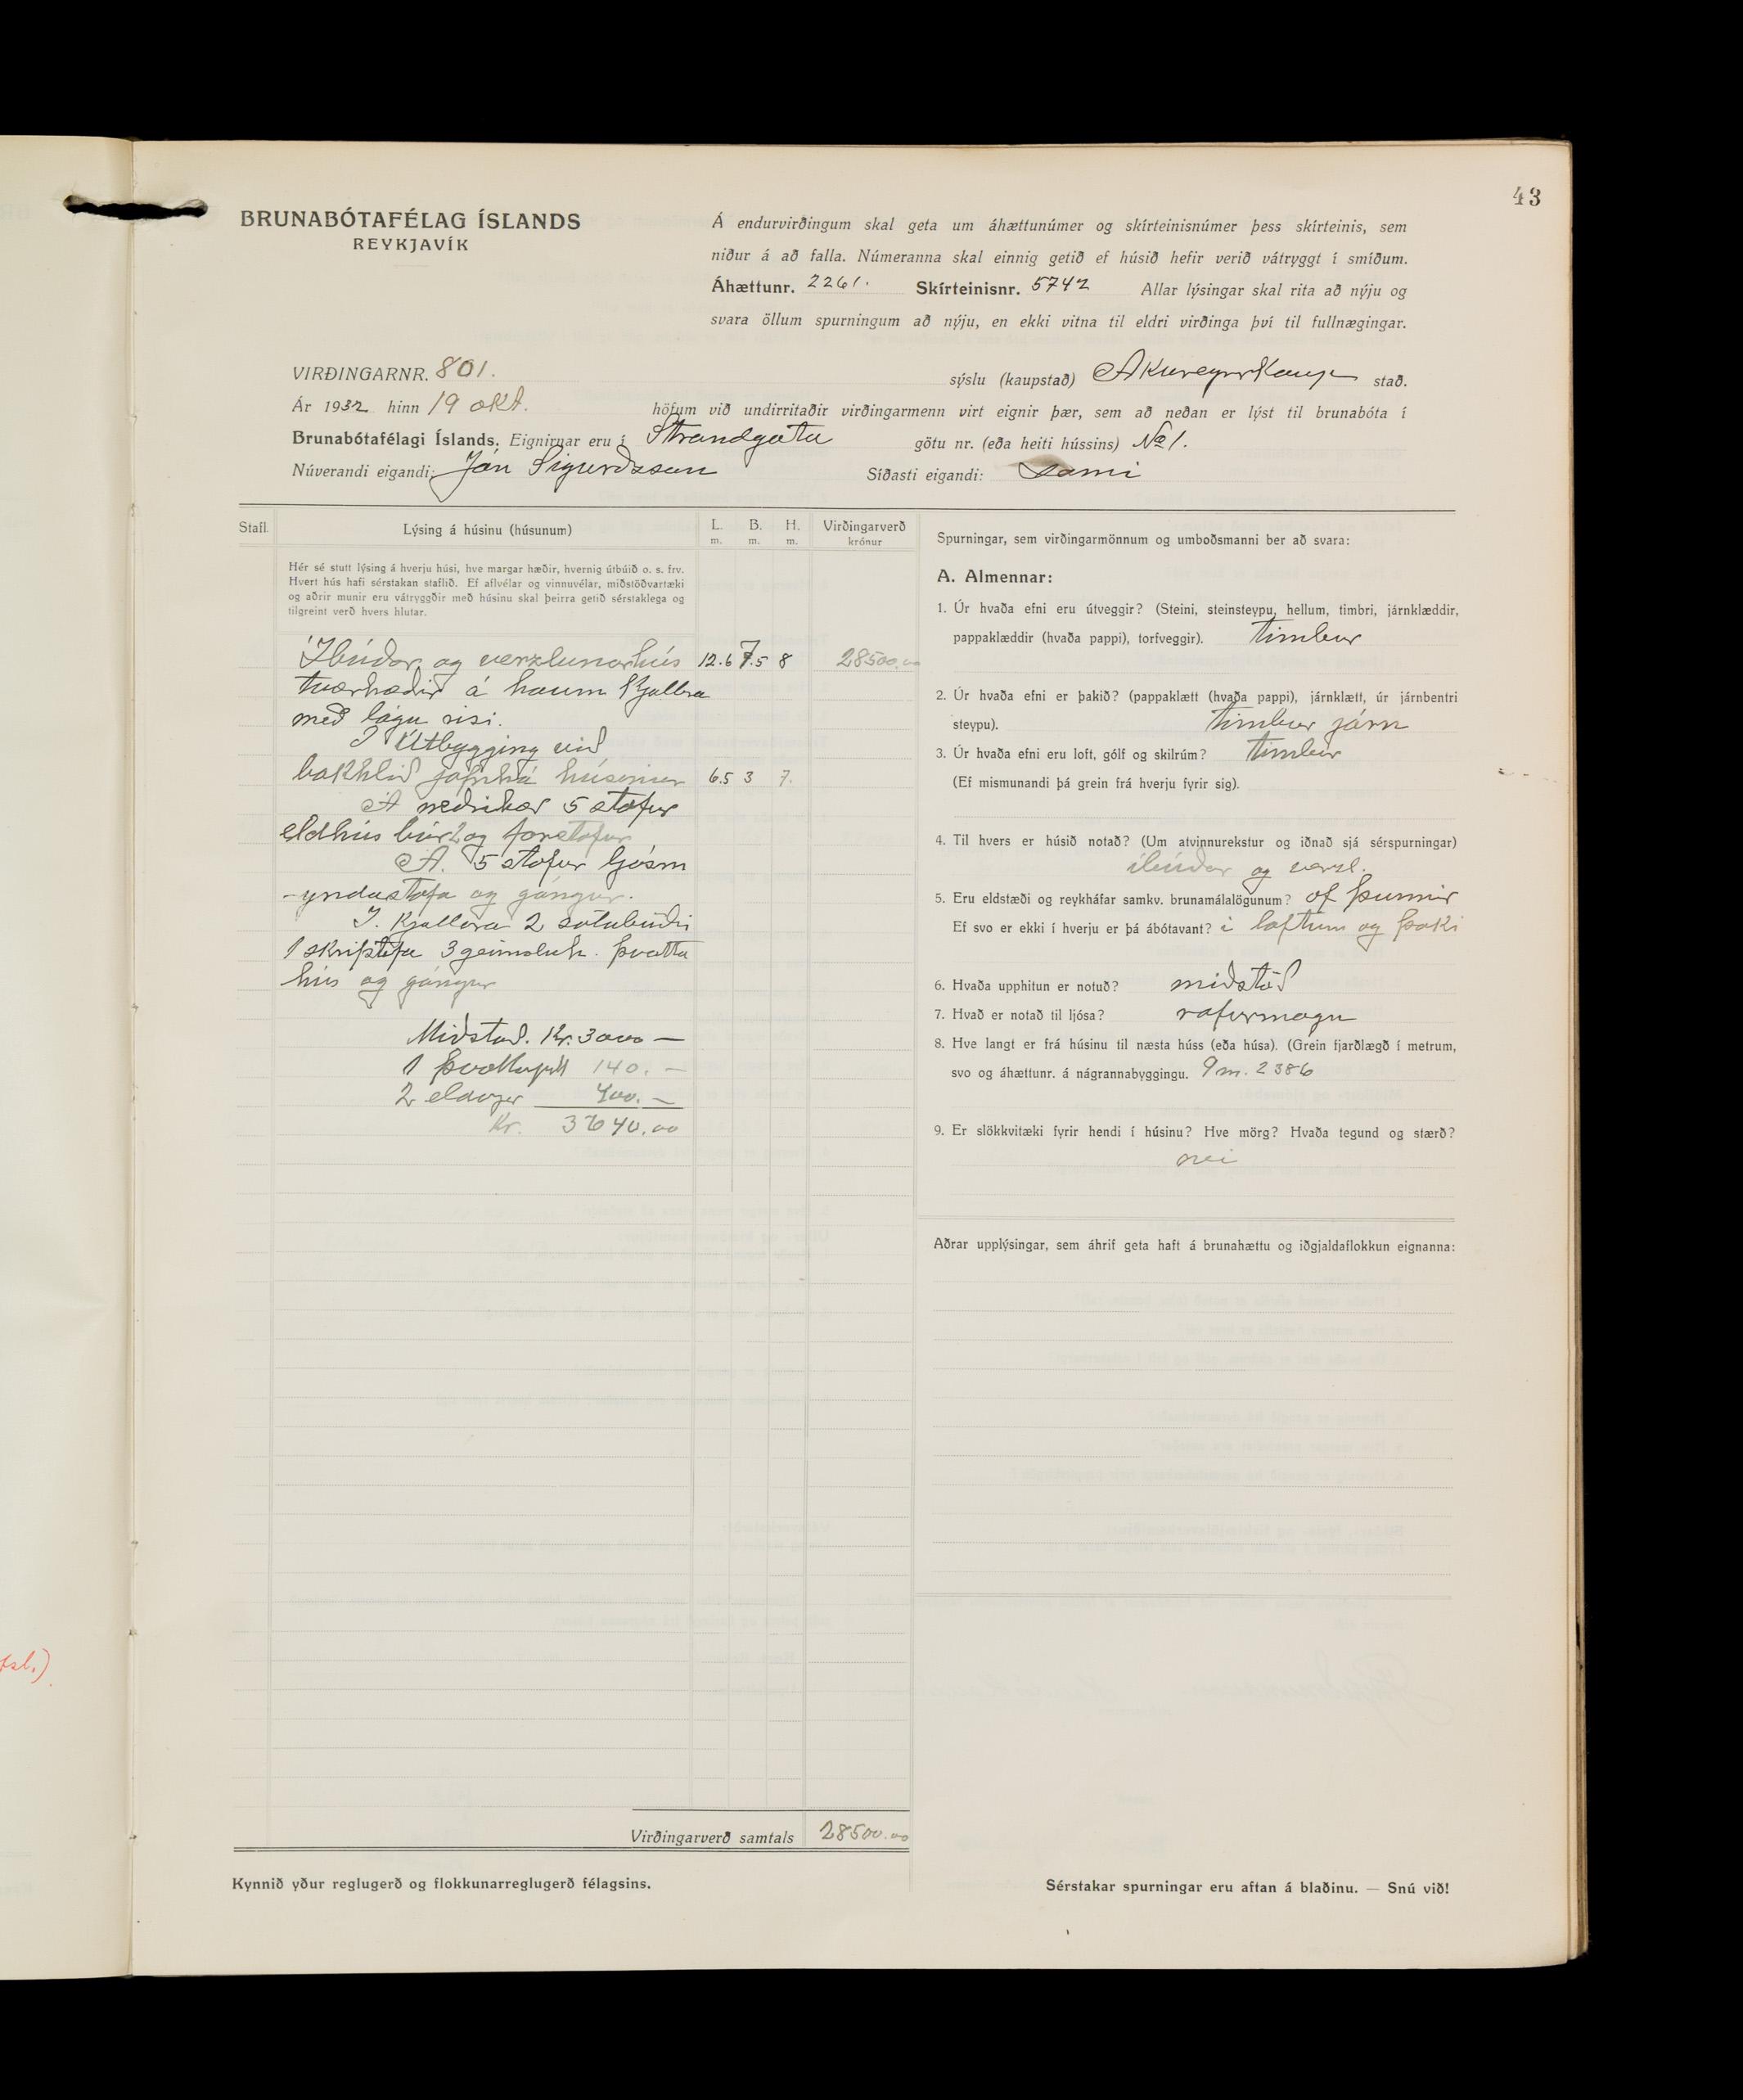 43
BRUNABÓTAFÉLAG ÍSLANDS
REYKJAVÍK
Á endurvirðingum skal geta um áhættunúmer og skírteinisnúmer þess skírteinis, sem
niður á að falla. Númeranna skal einnig getið ef húsið hefir verið vátryggt í smíðum.
Áhættunr. 2261. Skírteinisnr. 5742 Allar lýsingar skal rita að nýju og
svara öllum spurningum að nýju, en ekki vitna til eldri virðinga því til fullnægingar.
VIRÐINGARNR. 801. sýslu (kaupstað) Akureyrarkaup stað.
Ár 1932 hinn 19 okt. höfum við undirritaðir virðingarmenn virt eignir þær, sem að neðan er lýst til brunabóta í
Brunabótafélagi Íslands. Eignirnar eru í Strandgata götu nr. (eða heiti hússins) No 1.
Núverandi eigandi: Jón Sigurðsson Síðasti eigandi: sami
Stafl. Lýsing á húsinu (húsunum) L. m. B. m. H. m. Virðingarverð krónur
Hér sé stutt lýsing á hverju húsi, hve margar hæðir, hvernig útbúið o. s. frv.
Hvert hús hafi sérstakan staflið. Ef aflvélar og vinnuvélar, miðstöðvartæki
og aðrir munir eru vátryggðir með húsinu skal þeirra getið sérstaklega og
tilgreint verð hvers hlutar.
Íbúðar og verzlunarhús 12.6 7.5 8 28500.00
tvær hæðir á háum Kjallra
með lágu risi.
Útbygging við
bakhlið jafnhá húsinu 6.5 3 7.
Á neðrihæð 5 stofur
eldhús búr 2 og forstofur
Á. 5 stofur ljósm
-yndastofa og gángur.
I. Kjallara 2 sölubúðir
1 skrifstofa 3 geimsluh. þvotta
hús og gángur
Miðstöð. Kr. 3000 —
1 þvottapott 140. —
2 eldavjer 400. —
Kr. 3640.00
Virðingarverð samtals 28500.00
Kynnið yður reglugerð og flokkunarreglugerð félagsins.
Spurningar, sem virðingarmönnum og umboðsmanni ber að svara:
A. Almennar:
1. Úr hvaða efni eru útveggir? (Steini, steinsteypu, hellum, timbri, járnklæddir,
pappaklæddir (hvaða pappi), torfveggir). timbur
2. Úr hvaða efni er þakið? (pappaklætt (hvaða pappi), járnklætt, úr járnbentri
steypu). timbur járn
3. Úr hvaða efni eru loft, gólf og skilrúm? timbur
(Ef mismunandi þá grein frá hverju fyrir sig).
4. Til hvers er húsið notað? (Um atvinnurekstur og iðnað sjá sérspurningar)
íbúðar og verzl.
5. Eru eldstæði og reykháfar samkv. brunamálalögunum? of þunnir
Ef svo er ekki í hverju er þá ábótavant? í loftum og þaki
6. Hvaða upphitun er notuð? miðstöð
7. Hvað er notað til ljósa? rafurmagn
8. Hve langt er frá húsinu til næsta húss (eða húsa). (Grein fjarðlægð í metrum,
svo og áhættunr. á nágrannabyggingu. 9 m. 2386
9. Er slökkvitæki fyrir hendi í húsinu? Hve mörg? Hvaða tegund og stærð?
nei
Aðrar upplýsingar, sem áhrif geta haft á brunahættu og iðgjaldaflokkun eignanna:
Sérstakar spurningar eru aftan á blaðinu. — Snú við!